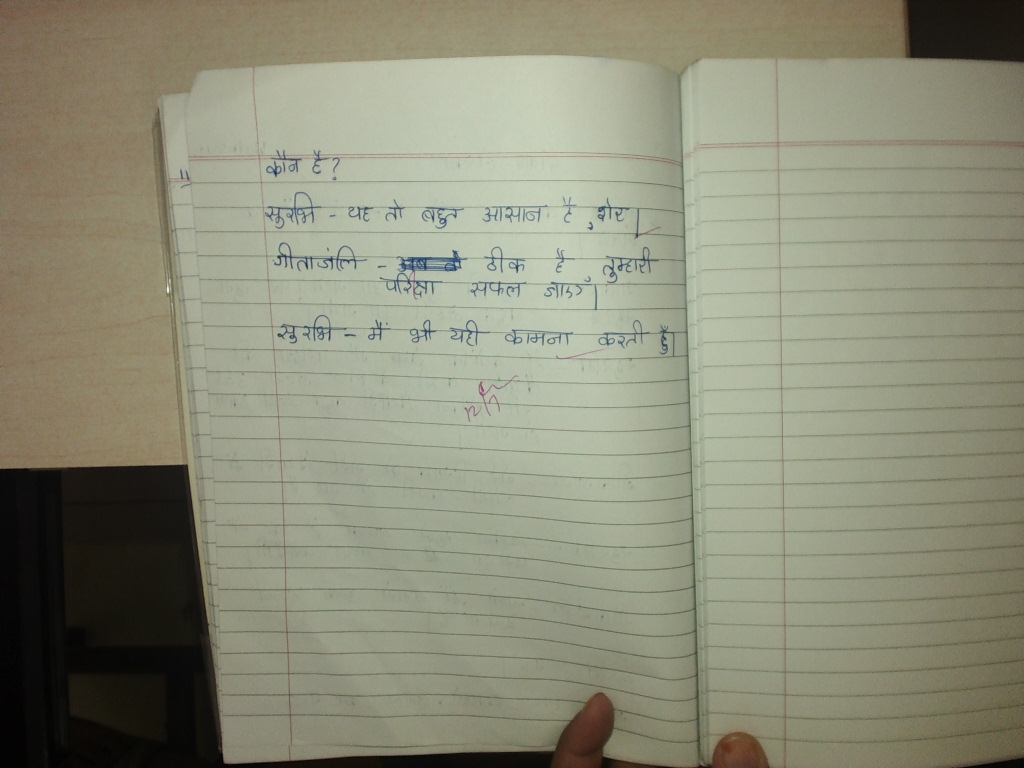 कौन है?
सुरभि - यह तो बहुत आसान है, शेर।
गीताजंलि - ठीक है तुम्हारी
परिक्षा सफल जाएँ।
सुरभि - मैं भी यही कामना करती हुँ।